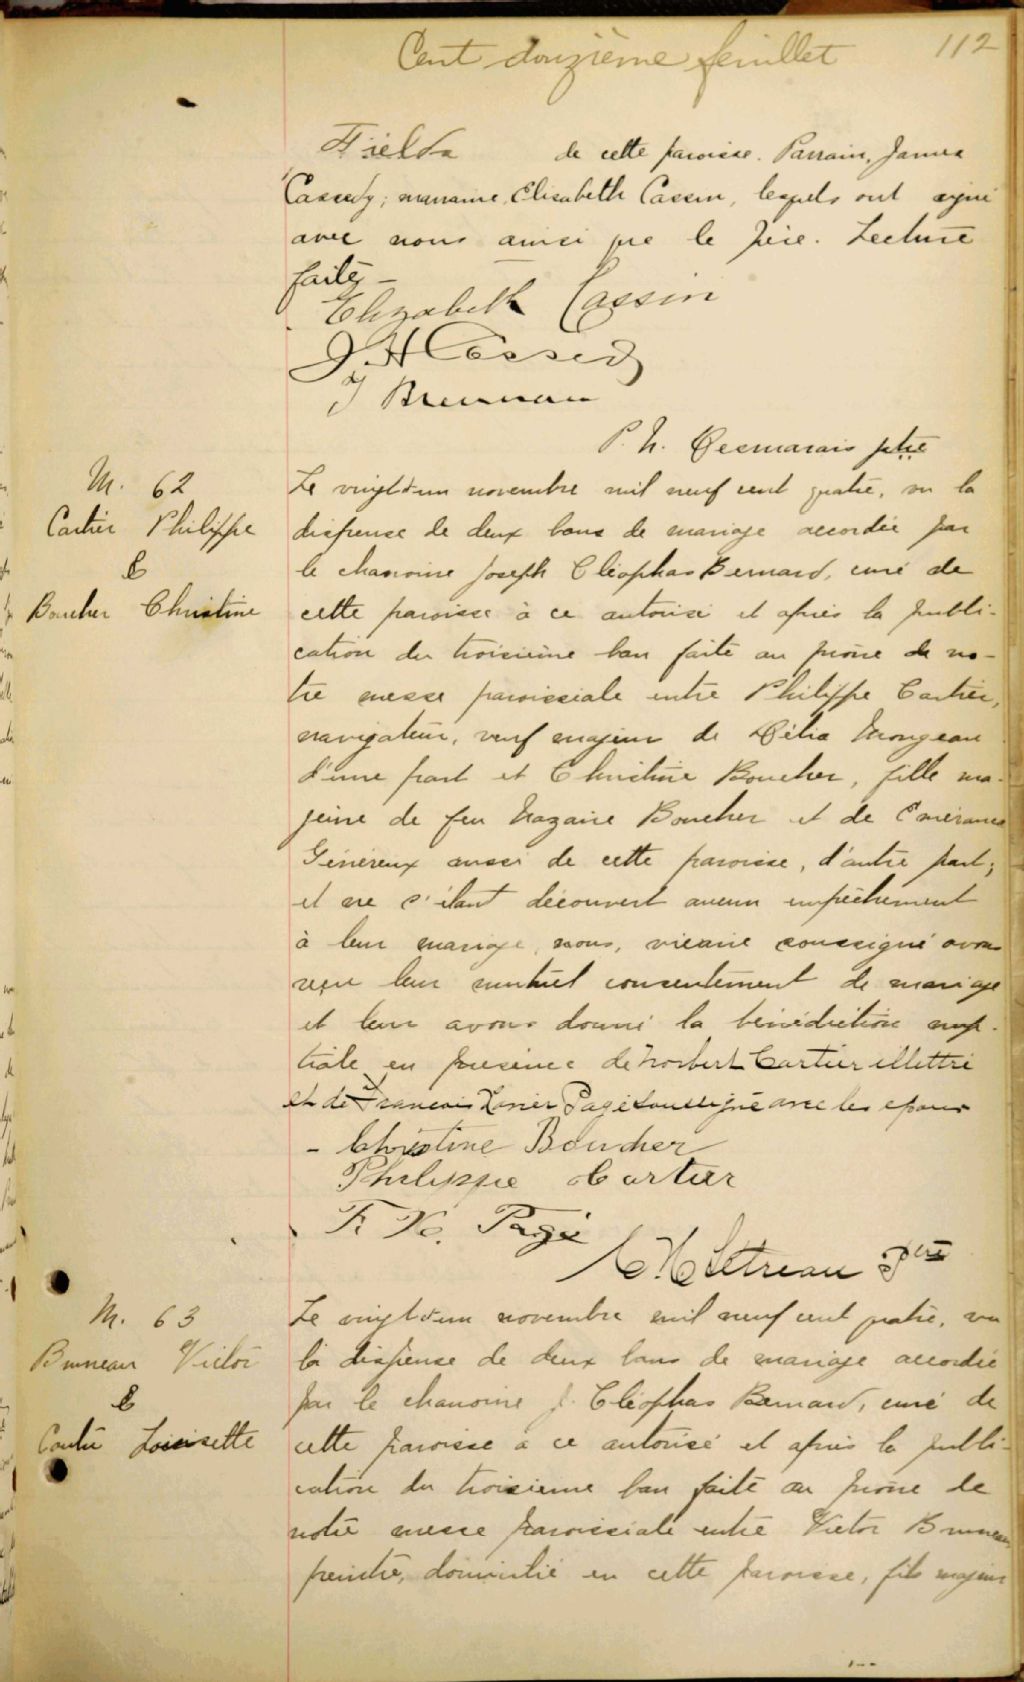 Cent douzième feuillet 112
Fields de cette paroisse. Parrain, James
Cassedy; marraine, Elisabeth Cassin, lesquels ont signé
avec nous ainsi que le père. Lecture
faite, —
Elizabeth Cassin
J. H Cassedy
J Brennan
P. N. Desmarais ptre
M. 62
Cartier Philippe
&
Boucher Christine
Le vingt-et-un novembre mil neuf cent quatre, vu la
dispense de deux bans de mariage accordée par
le chanoine Joseph Cléophas Bernard, curé de
cette paroisse à ce autorisé et après la publi-
cation du troisième ban faite au prône de no-
tre messe paroissiale entre Philippe Cartier,
navigateur, veuf majeur de Célia Mongeau
d'une part et Christine Boucher, fille ma-
jeure de feu Nazaire Boucher et de Emérance
Généreux aussi de cette paroisse, d'autre part;
et ne s'étant découvert aucun empêchement
à leur mariage, nous, vicaire soussigné avons
reçu leur mutuel consentement de mariage
et leur avons donné la bénédiction nup-
tiale en présence de Norbert Cartier illettré
et de Francois Xavier Pagé soussigné avec les epoux
- Christine Boucher
Philippe Cartier
F. X. Pagé
Ptre
M. 63
Bruneau Victor
&
Coutu Loiselle
Le vingt-et-un novembre mil neuf cent quatre, vu
la dispense de deux bans de mariage accordée
par le chanoine J. Cléophas Bernard, curé de
cette paroisse à ce autorisé et après la publi-
cation du troisième ban faite au prône de
notre messe paroissiale entre Victor Bruneau
peintre, domicilié en cette paroisse, fils majeur